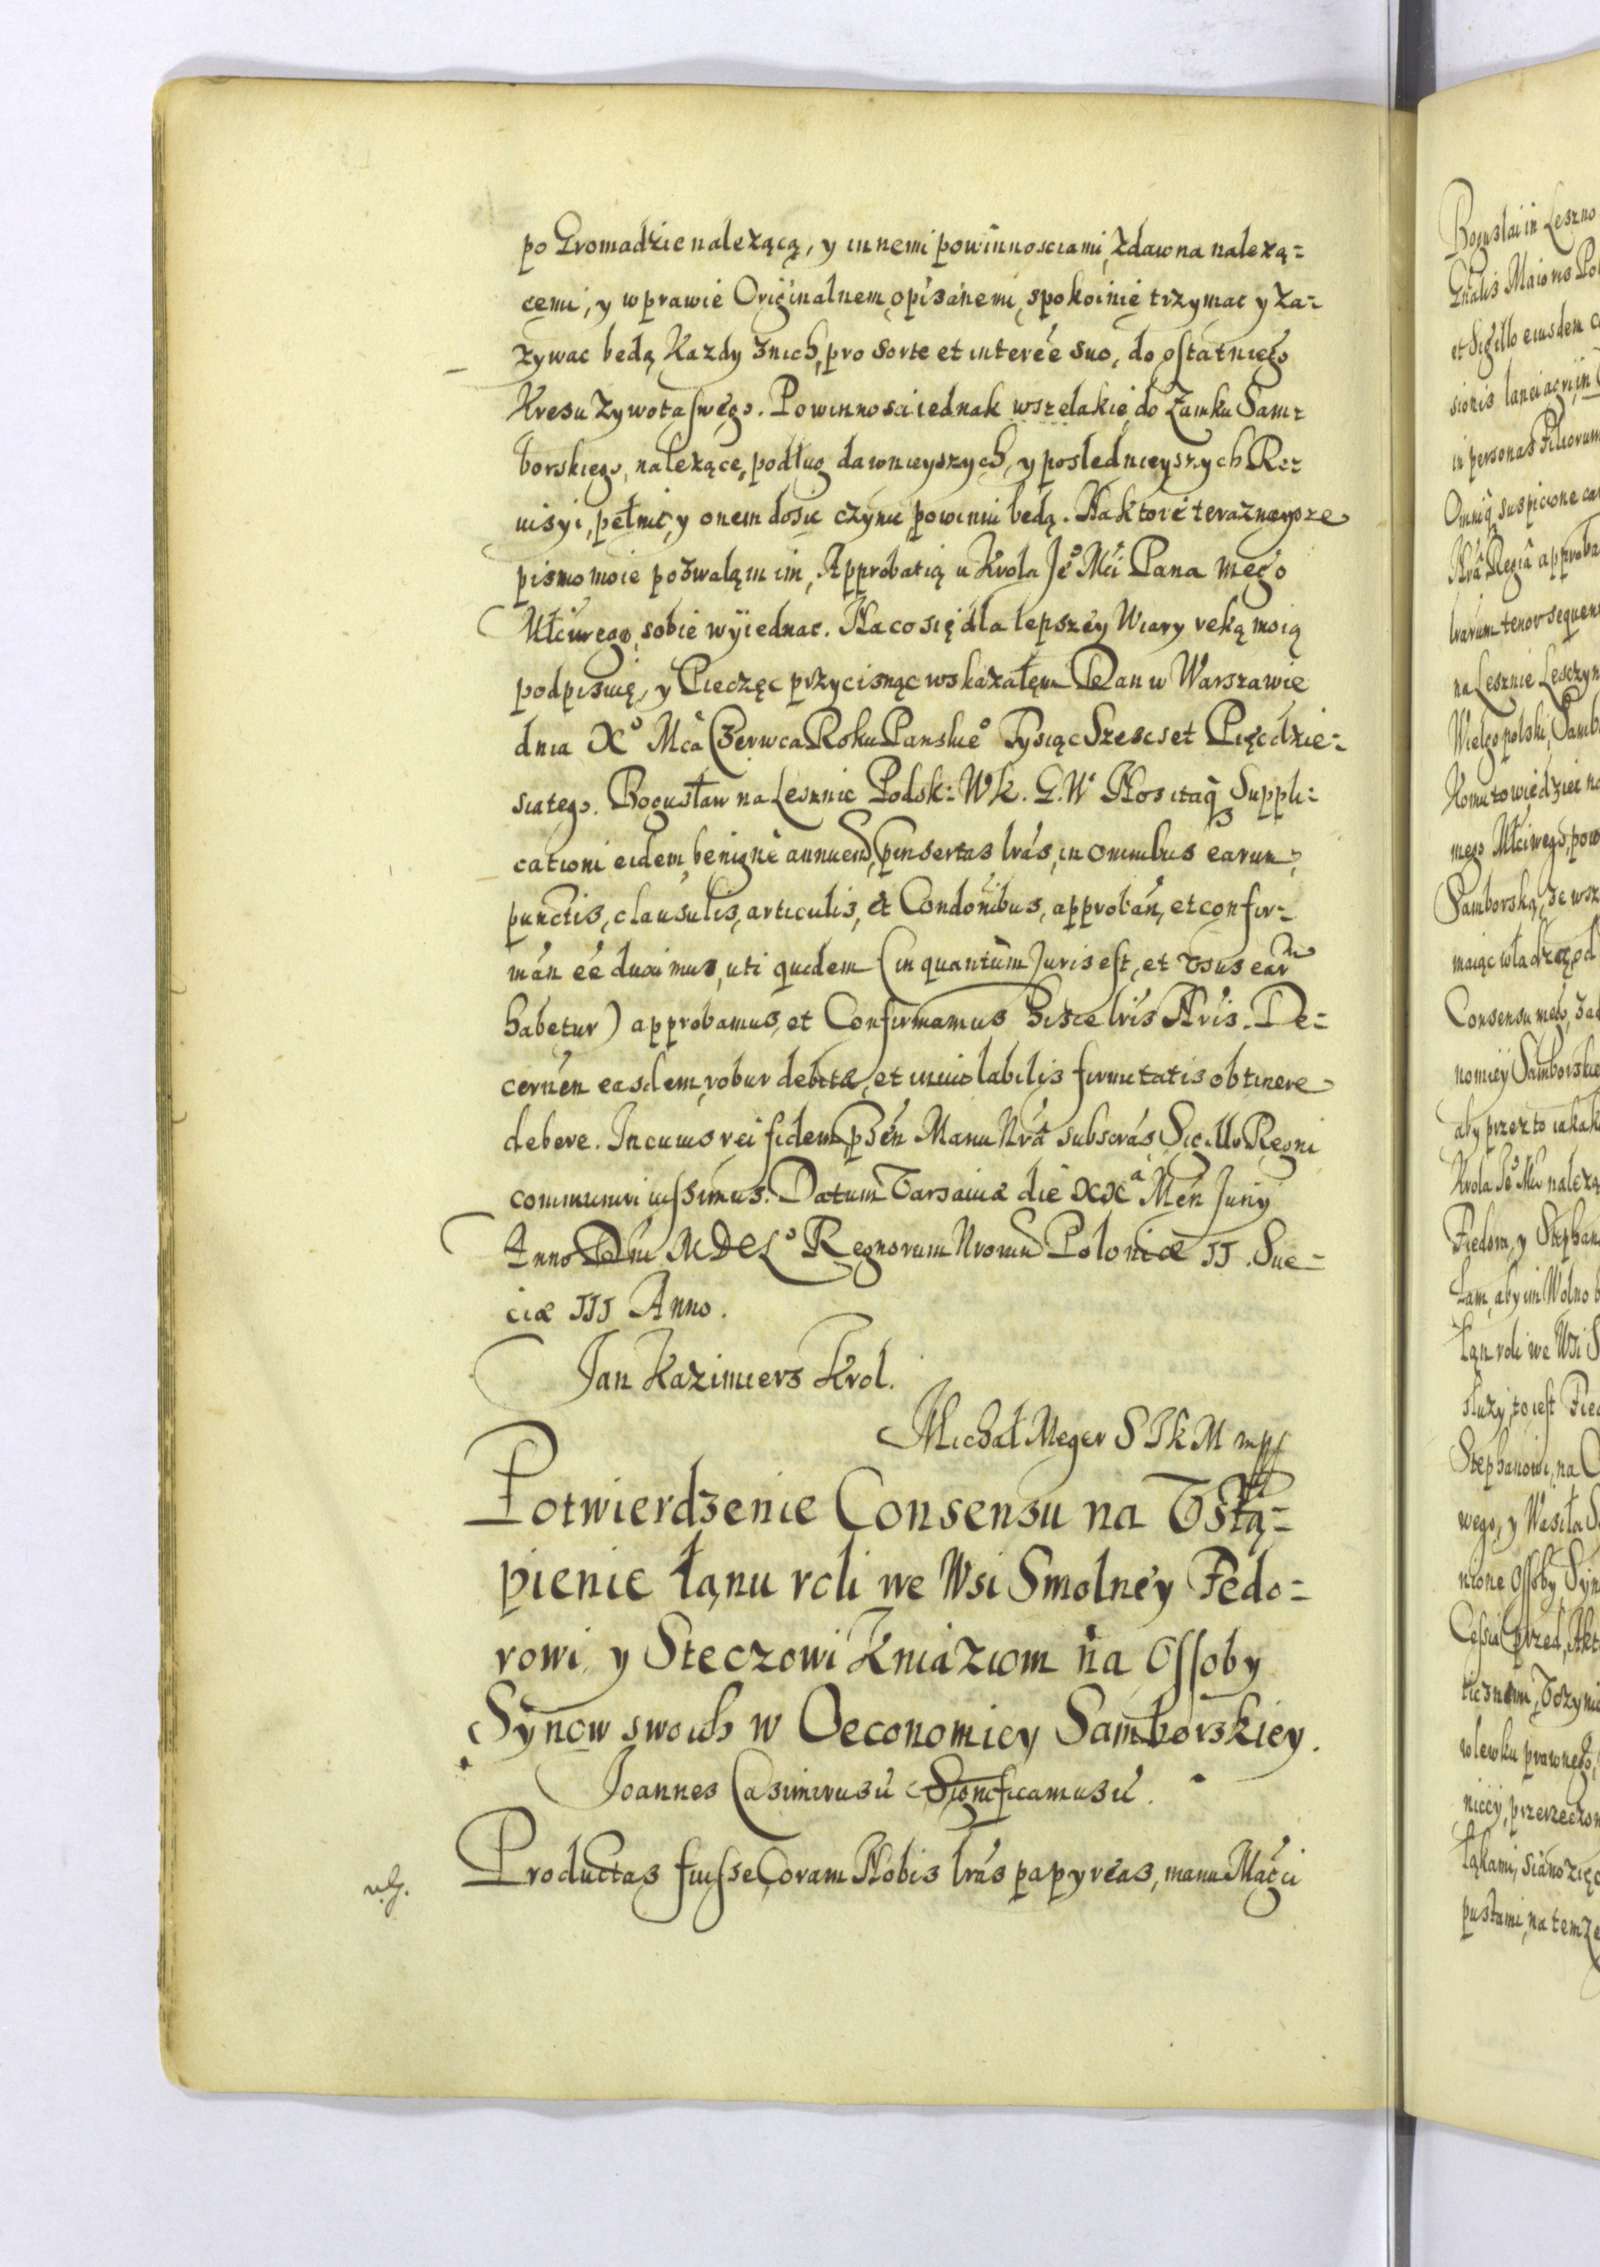 po Gromadzie nalezącą, y innemi powinnosciami, zdawna nalezą=
cemi, y w prawie Originalnem opisanemi, spokoinie trzymac y za=
zywac bedą Kazdy znich, pro sorte et interee suo, do ostatniego
Kresu Zywota swego. Powinnosci iednak wszelakie do Zamku Sam=
borskiego, nalezące, podług dawnieyszych, y poslednieyszych Re=
wisyi, pełnic, y onem dosic czynic powinni bedą. Na ktore teraznieysze
pismo moie pozwalam im, Approbatią u Krola Je° Mci Pana mego
Młciwego, sobie wyiednac. Na co się dla lepszey Wiary reką moią
podpisuię, y Pieczęc przycisnąc wskazałem. Dan w Warszawie
dnia X° Mca Czerwca Roku Panskie° Tysiąc Szescset Pięcdzie=
siatego. Bogusław na Lesznie Podsk: W k. G. W. Nos itaq Suppli=
cationi eidem, benigne annuen, pinsertas lras, in omnibus earum,
punctis, clausulis, articulis, et Condonibus, approban, et confir=
man ee duximus, uti quidem (in quantum Juris est, et Usus ear
habetur) approbamus, et Confirmamus hisce lris Nris. De=
cernen easdem, robur debitæ, et inviolabilis firmitatis obtinere
debere. In cuius rei fidem psen Manu Nra subscras, Sigillo Regni
communiri iussimus. Datum Varsaviæ die XXª Men Juny
Anno Dni MDCL° Regnorum Nrorum Poloniæ II. Sue=
ciæ III Anno.
Jan Kazimierz Krol.
Michał Meger S J k M mpp
Potwierdzenie Consensu na Ustą=
pienie łanu roli we Wsi Smolney Fedo=
rowi y Steczowi Kniaziom na Ossoby
Synow swoich w Oeconomiey Samborskiey.
Joannes Casimirus Significamus
Productas fuisse Coram Nobis lras papyreas, manu Magci
Boguslai in Leszno
Gnalis Maioris Pol
et Sigillo eiusdem
sionis lanei agri, in
in personas Filiorum
Omniq suspicione car
Nra Regia approba
lrarum tenor sequen
na Lesznie Lesczyn
Wielgopolski, Samb
Komu to wiedziec na
mego Młciwego, pow
Samborską, ze wsz
maiąc władzą, od
Consensu mego, zad
nomiey Samborskie
aby przez to iakak
Krola Je° Mci nalezą
Fiedora, y Stephan
łam, aby im Wolno b
Łan roli we Wsi S
sluzy, to iest Fied
Stephanowi, na
wego, y Wasila S
nione Ossoby Syn
Cessia przed Akt
ticznemi, Uczyni
wlewku prawnego,
niey, przerzeczon
łąkami, sianozięc
pustami, na tem